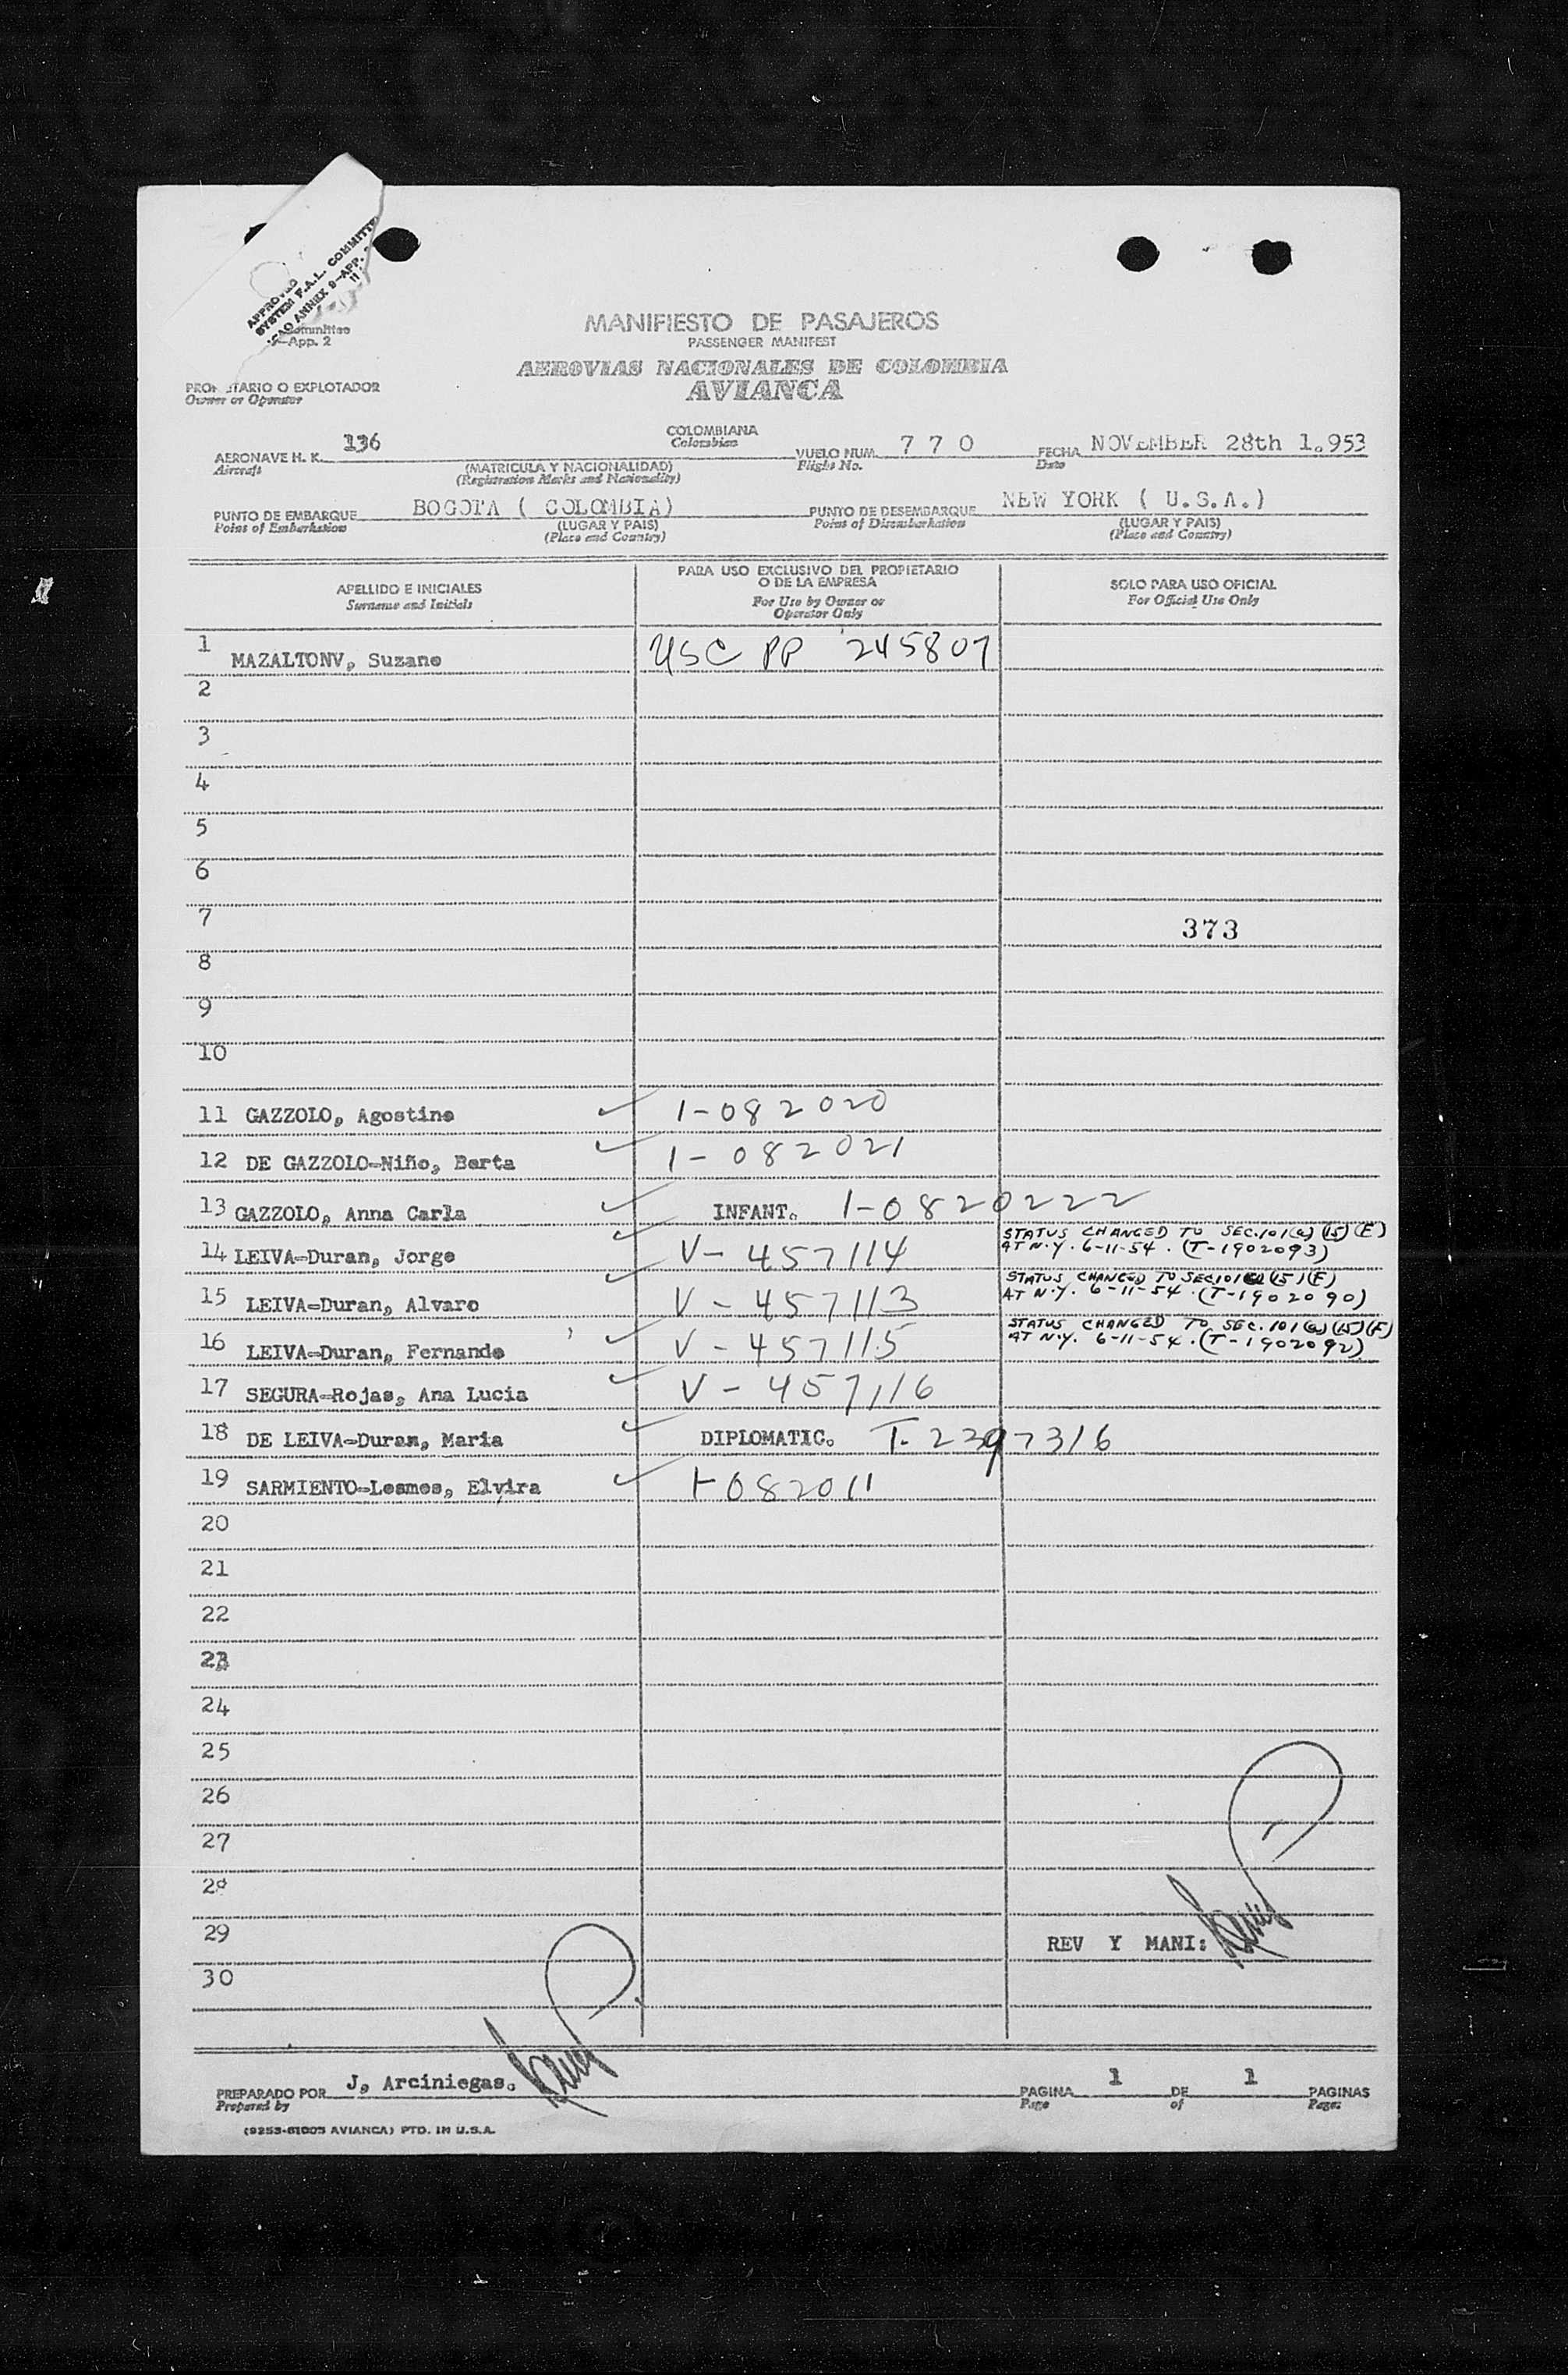 APPROVED
SYSTEM F.A.L. COMMITTE
ICAO ANNEX 9-APP.
Committee
9-App. 2
MANIFIESTO DE PASAJEROS
PASSENGER MANIFEST
AEROVIAS NACIONALES DE COLOMBIA
AVIANCA
PROPIETARIO O EXPLOTADOR
Owner or Operator
AERONAVE H. K. 136 COLOMBIANA VUELO NUM. 7 7 0 FECHA NOVEMBER 28th 1.953
Aircraft Colombian Flight No. Date
(MATRICULA Y NACIONALIDAD)
(Registration Marks and Nationality)
PUNTO DE EMBARQUE BOGOTA ( COLOMBIA) PUNTO DE DESEMBARQUE NEW YORK ( U.S.A.)
Point of Embarkation (LUGAR Y PAIS) Point of Disembarkation (LUGAR Y PAIS)
(Place and Country) (Place and Country)
APELLIDO E INICIALES PARA USO EXCLUSIVO DEL PROPIETARIO O DE LA EMPRESA SOLO PARA USO OFICIAL
Surname and Initials For Use by Owner or Operator Only For Official Use Only
1 MAZALTONV, Suzane USC PP 245807
2
3
4
5
6
7 373
8
9
10
11 GAZZOLO, Agostino 1-082020
12 DE GAZZOLO-Niño, Berta 1-082021
13 GAZZOLO, Anna Carla INFANT. 1-0820222
14 LEIVA-Duran, Jorge V-457114 STATUS CHANGED TO SEC.101(a)(15)(F)
AT N.Y. 6-11-54. (T-1902093)
15 LEIVA-Duran, Alvaro V-457113 STATUS CHANGED TO SEC101(a)(15)(F)
AT N.Y. 6-11-54.(T-1902090)
16 LEIVA-Duran, Fernando V-457115 STATUS CHANGED TO SEC.101(a)(15)(F)
AT N.Y. 6-11-54.(T-1902092)
17 SEGURA-Rojas, Ana Lucia V-457116
18 DE LEIVA-Duran, Maria DIPLOMATIC. T-2397316
19 SARMIENTO-Lesmes, Elvira 1-082011
20
21
22
23
24
25
26
27
28
29 REV Y MANI:
30
PREPARADO POR J, Arciniegas. PAGINA 1 DE 1 PAGINAS
Prepared by Page of Pages
(9253-61005 AVIANCA) PTD. IN U.S.A.